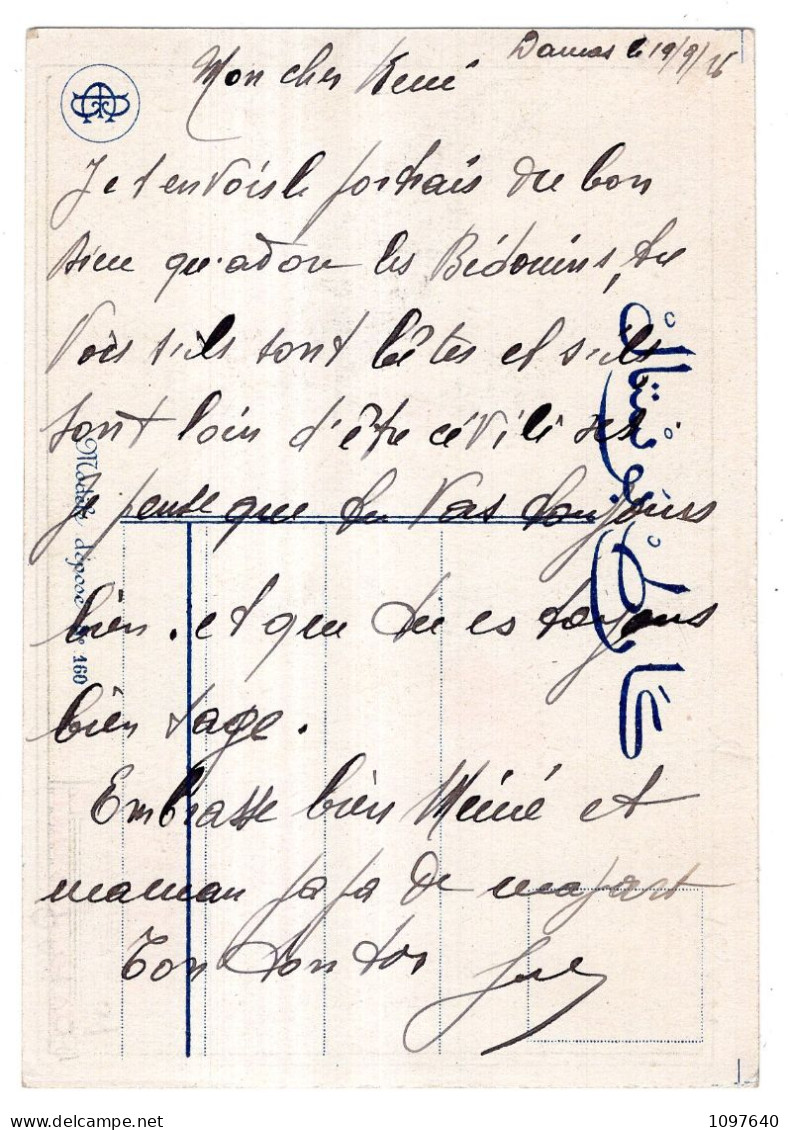 Damas le 19/9/26
Mon cher René
Je t envois le portrais du bon
dieu qu'adore les Bédouins, tu
Vois s'ils sont bêtes et s'ils
sont loin d'être civilisés.
Je pense que tu Vas toujours
bien. et que tu es toujours
bien sage.
Embrasse bien Mémé et
maman papa de ma part
Ton tonton
Modèle déposé No 160
كارت بوستال
1097640